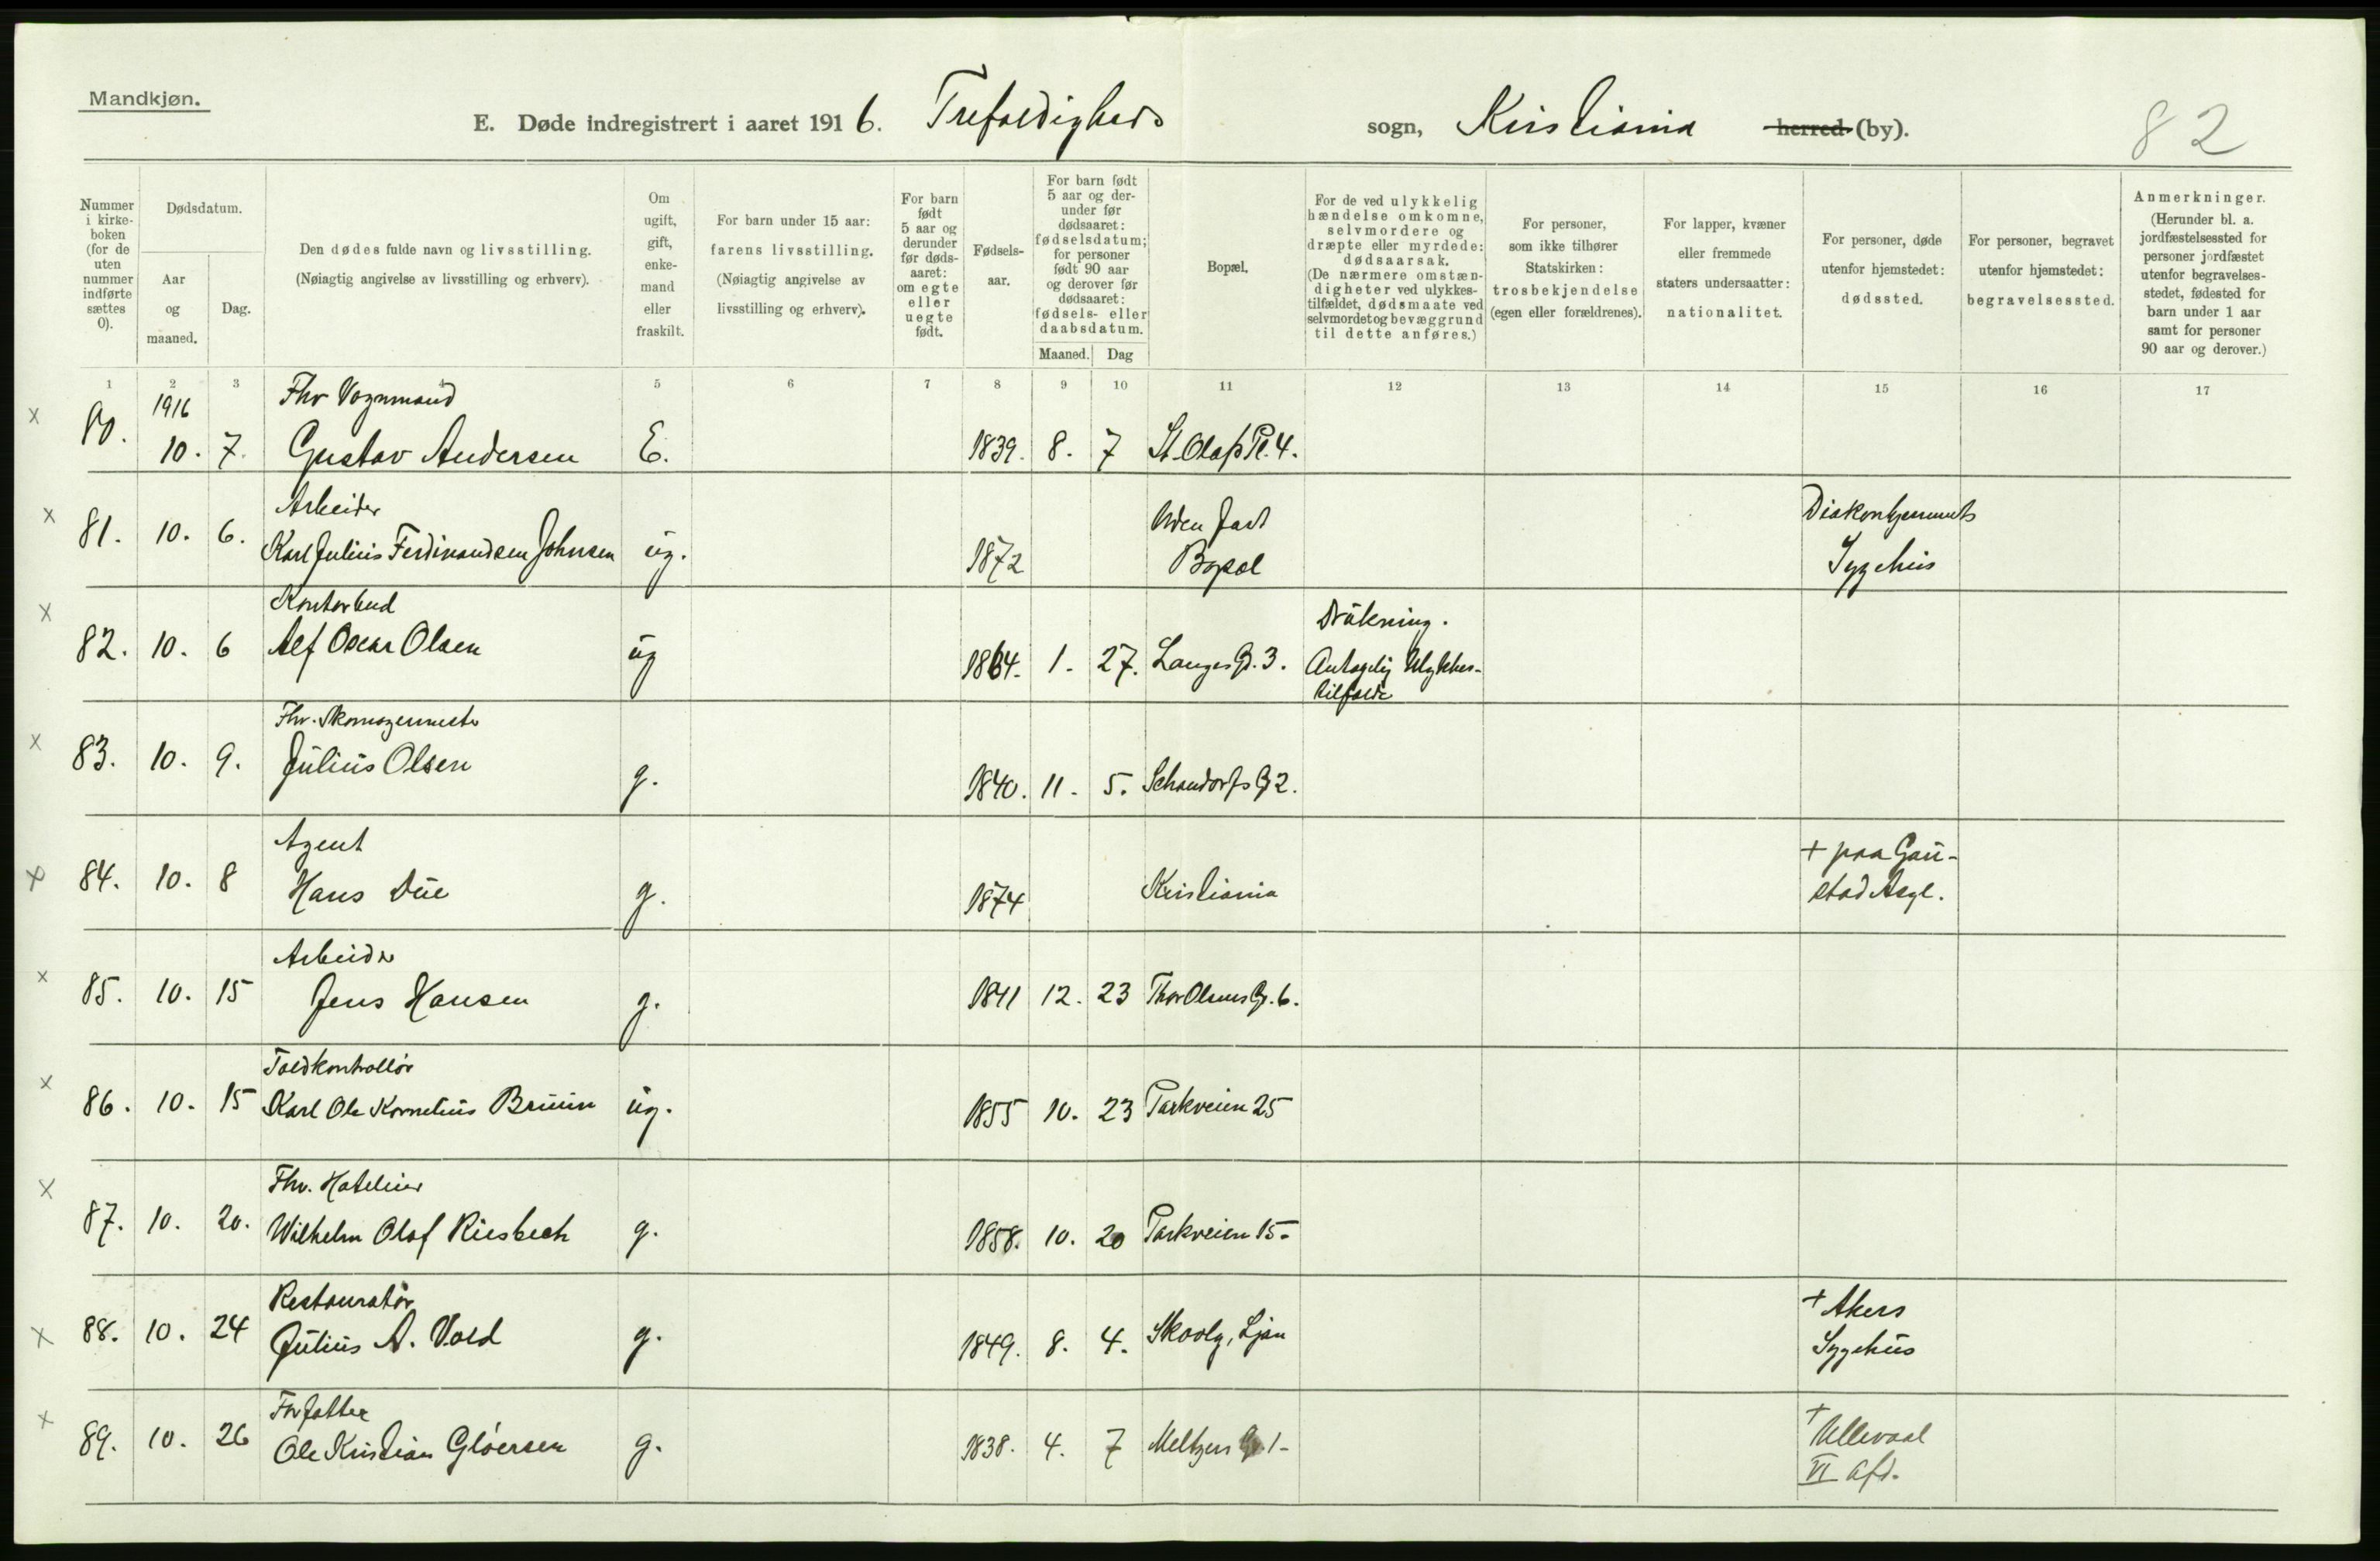 Mandkjøn.
E. Døde indregistrert i aaret 1916. Trefoldigheds sogn, Kristiania herred (by). 82
Nummer i kirke-boken (for de uten nummer indførte sættes 0).
Dødsdatum.
Aar og maaned.
Dag.
Den dødes fulde navn og livsstilling.
(Nøiagtig angivelse av livsstilling og erhverv).
Om ugift, gift, enke-mand eller fraskilt.
For barn under 15 aar:
farens livsstilling.
(Nøiagtig angivelse av livsstilling og erhverv).
For barn født 5 aar og derunder før døds-aaret: om egte eller uegte født.
Fødsels-aar.
For barn født 5 aar og der-under før dødsaaret: fødselsdatum; for personer født 90 aar og derover før dødsaaret: fødsels- eller daabsdatum.
Maaned. Dag
Bopæl.
For de ved ulykkelig hændelse omkomne, selvmordere og dræpte eller myrdede: dødsaarsak.
(De nærmere omstæn-digheter ved ulykkes-tilfældet, dødsmaate ved selvmordet og bevæggrund til dette anføres.)
For personer, som ikke tilhører Statskirken: trosbekjendelse (egen eller forældrenes).
For lapper, kvæner eller fremmede staters undersaatter: nationalitet.
For personer, døde utenfor hjemstedet: dødssted.
For personer, begravet utenfor hjemstedet: begravelsessted.
Anmerkninger.
(Herunder bl. a. jordfæstelsessted for personer jordfæstet utenfor begravelses-stedet, fødested for barn under 1 aar samt for personer 90 aar og derover.)
1 2 3 4 5 6 7 8 9 10 11 12 13 14 15 16 17
1916 Fhv Vognmand
x 80. 10. 7. Gustav Andersen E. 1839. 8. 7 St. Olafs Pl. 4.
Arbeider Uden fast Diakonhjemmets
x 81. 10. 6. Karl Julius Ferdinandsen Johnsen ug. 1872 Bopæl Sygehus
Kontorbud Drukning.
x 82. 10. 6 Alf Oscar Olsen ug 1864. 1. 27. Langes G. 3. Antagelig Ulykkes-
tilfælde
Fhv. Skomagermester
x 83. 10. 9. Julius Olsen g. 1840. 11. 5. Schandorfs G 2.
Agent + paa Gau-
x 84. 10. 8 Hans Due g. 1874 Kristiania stad Asyl.
Arbeider
x 85. 10. 15 Jens Hansen g. 1841 12. 23 Thor Olsens G. 6.
Toldkontrollør
x 86. 10. 15 Karl Ole Kornelius Bruun ug. 1855 10. 23 Parkveien 25
Fhv. Hotelier
x 87. 10. 20. Wilhelm Olaf Riesbech g. 1858. 10. 20 Parkveien 15-
Restauratør + Akers
x 88. 10. 24 Julius A. Vold g. 1849. 8. 4. Skovly, Ljan Sygehus
Forfatter + Ullevaal
x 89. 10. 26 Ole Kristian Gløersen g. 1838. 4. 7 Meltzers G. 1- VI afd.